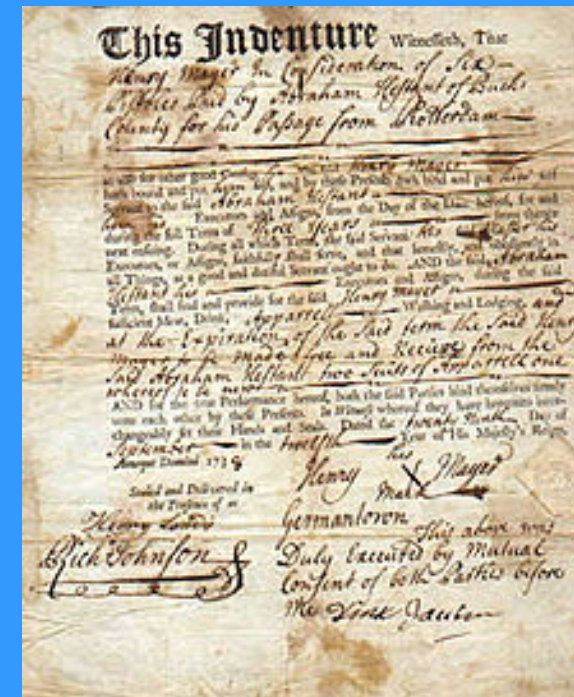 This Indenture Witnesseth, That
Henry Mayer In Consideration of Six
Pistoles paid by Abraham Hestant of Bucks
County for his Passage from Rotterdam
as also for other good Henry Mayer
hath bound and put him self, and by these Presents doth bind and put him self
Servant to the said Abraham Hestant
Executors and Assigns, from the Day of the Date hereof, for and
during the full Term of Three Years from thence
next ensuing. During all which Term, the said Servant his said Master his
Executors, or Assigns, faithfully shall serve, and that honestly, obediently in
all Things, as a good and dutiful Servant ought to do. AND the said Abraham
Hestant his Executors and Assigns, during the said
Term, shall find and provide for the said Henry Mayer
sufficient Meat, Drink, Apparrell Washing and Lodging, and
at the Expiration of the Said term the Said Henry
Mayer to be made free and Recieve from the
Said Abraham Hestant two Suits of Apparrell one
whereof to be new
AND for the true Performance hereof, both the said Parties bind themselves firmly
unto each other by these Presents. In Witness whereof they have hereunto inter-
changeably set their Hands and Seals. Dated the twenty Ninth Day of
September in the twelfth Year of His Majesty's Reign,
Annoque Domini 173
his
Henry X Mayer
mark
Sealed and Delivered in
the Presence of us
Henry
Rich Johnson
Germantown This above was
Duly Executed by Mutual
Consent of both Parties before
Me